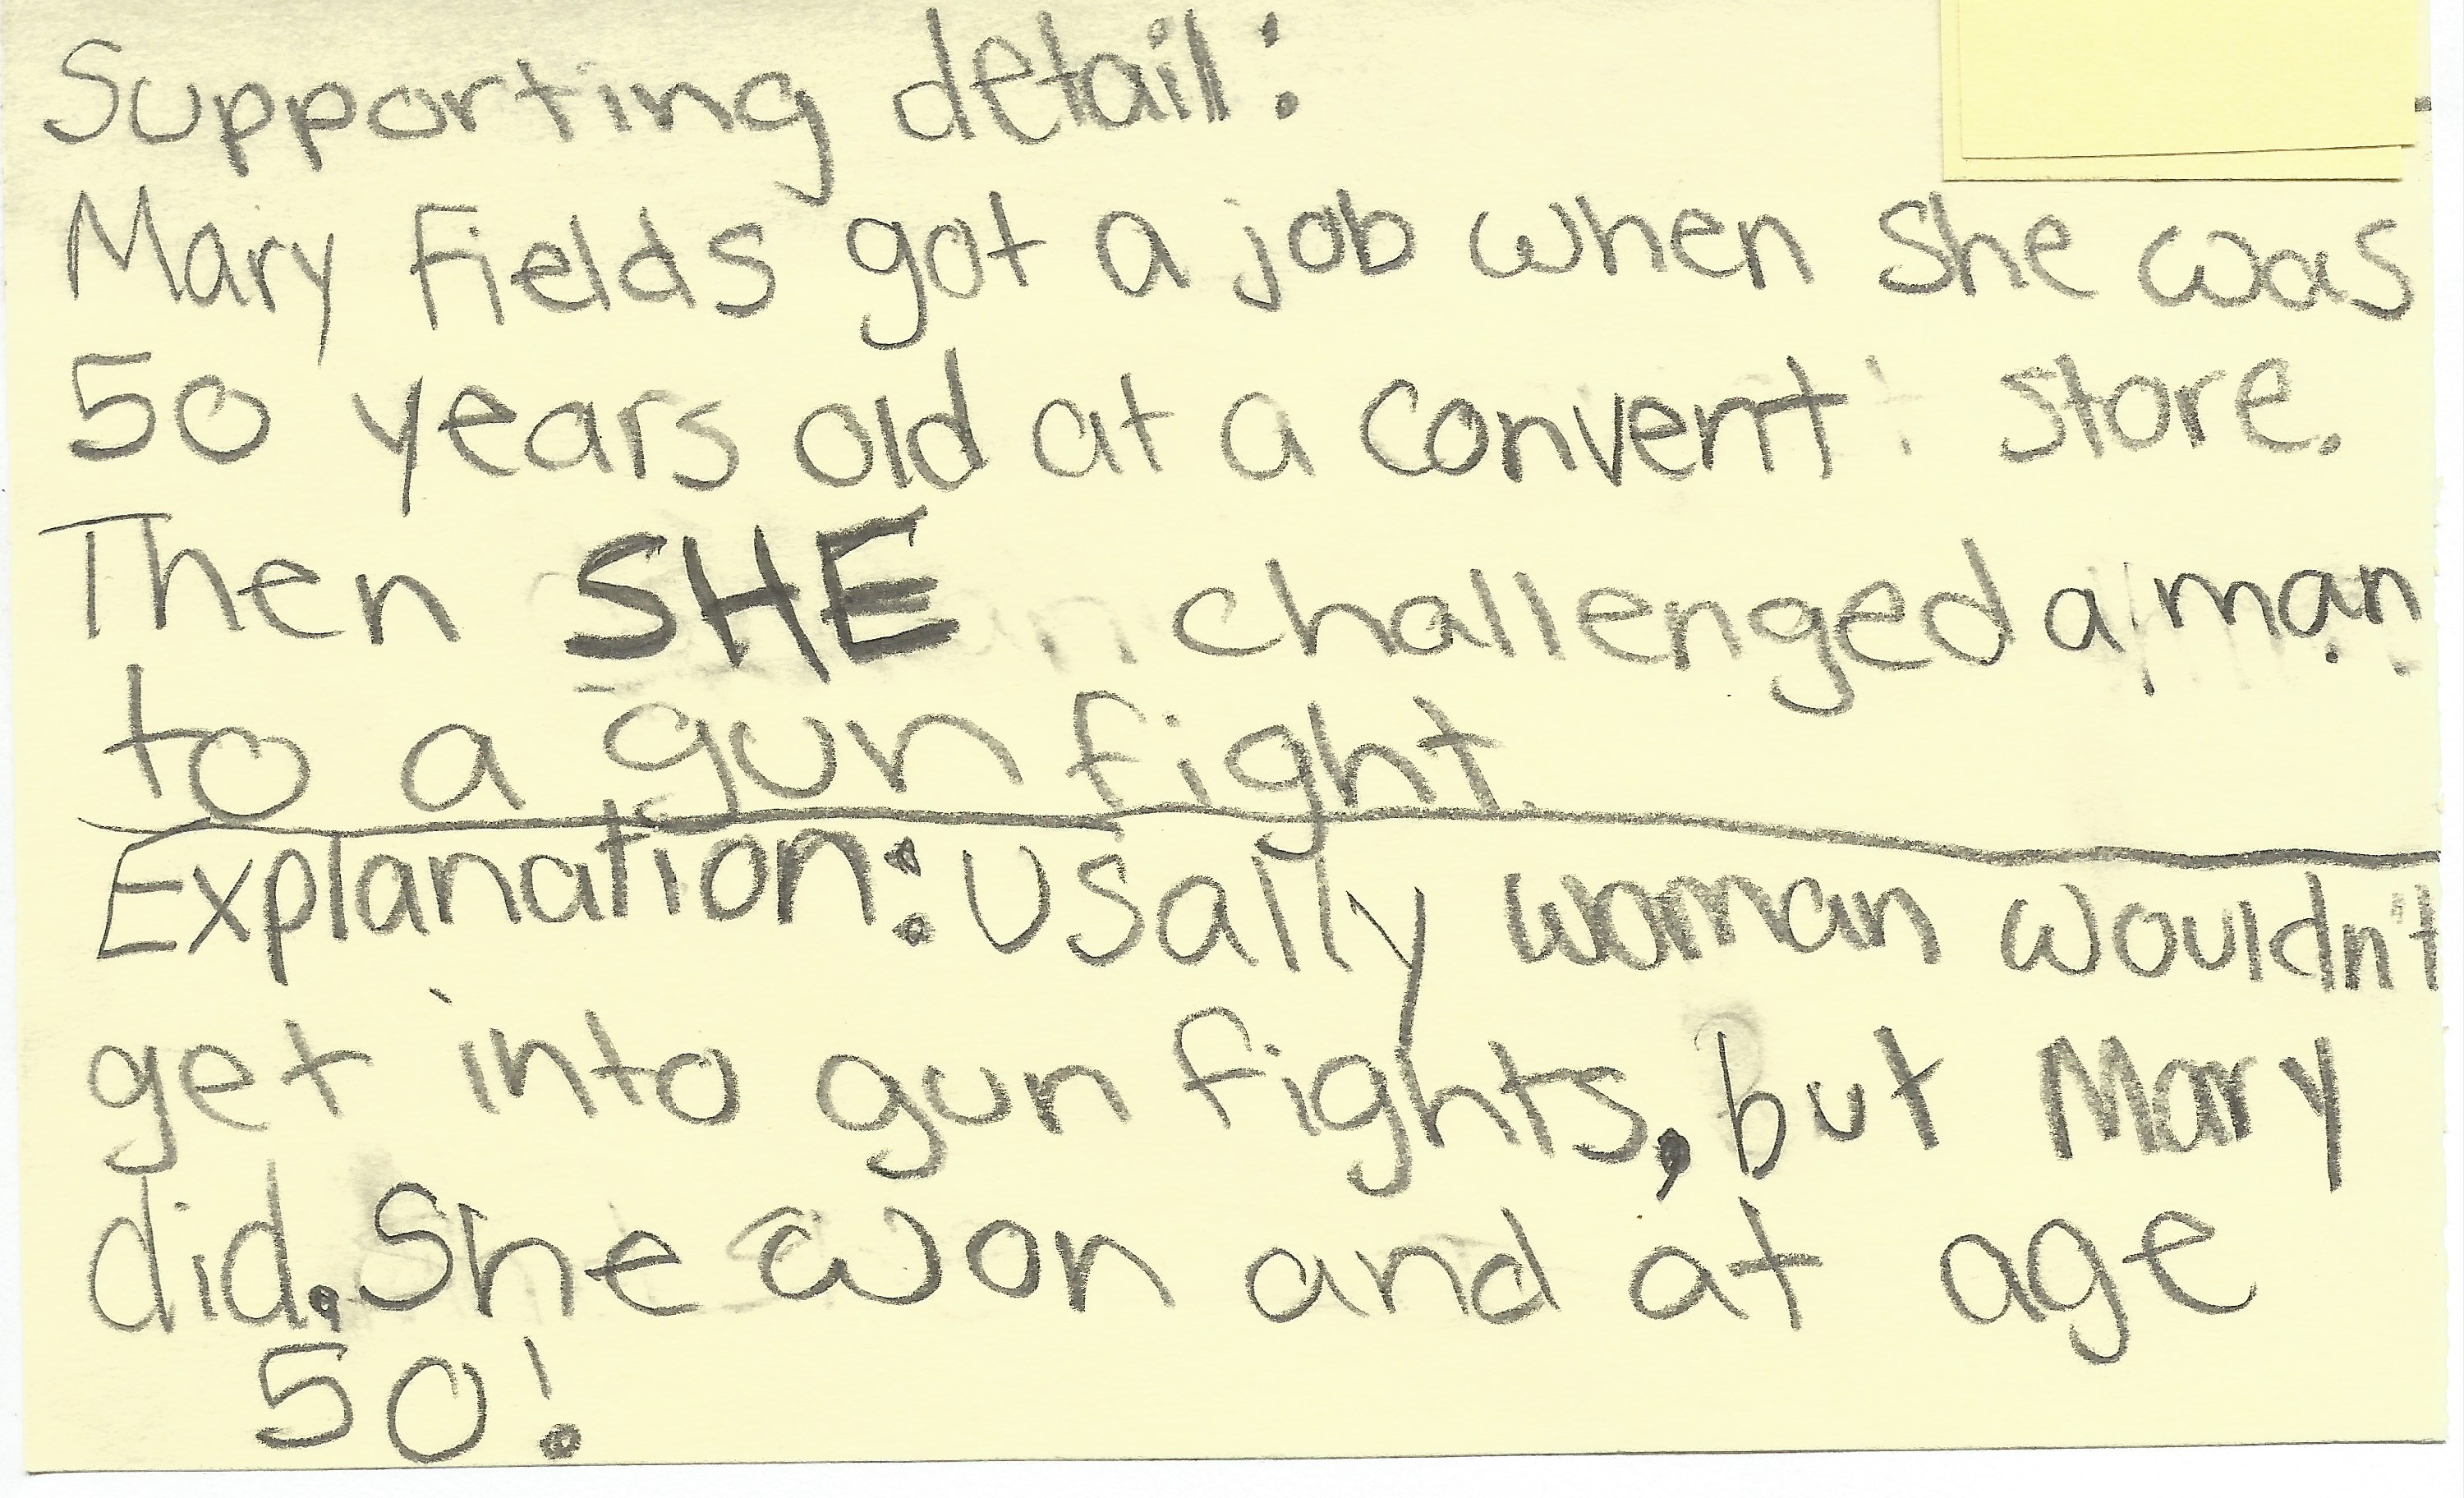 Supporting detail:
Mary Fields got a job when she was
50 years old at a convent store.
Then SHE challenged a man
to a gun fight.
Explanation: Usally woman wouldn't
get into gun fights, but Mary
did. She won and at age
50!